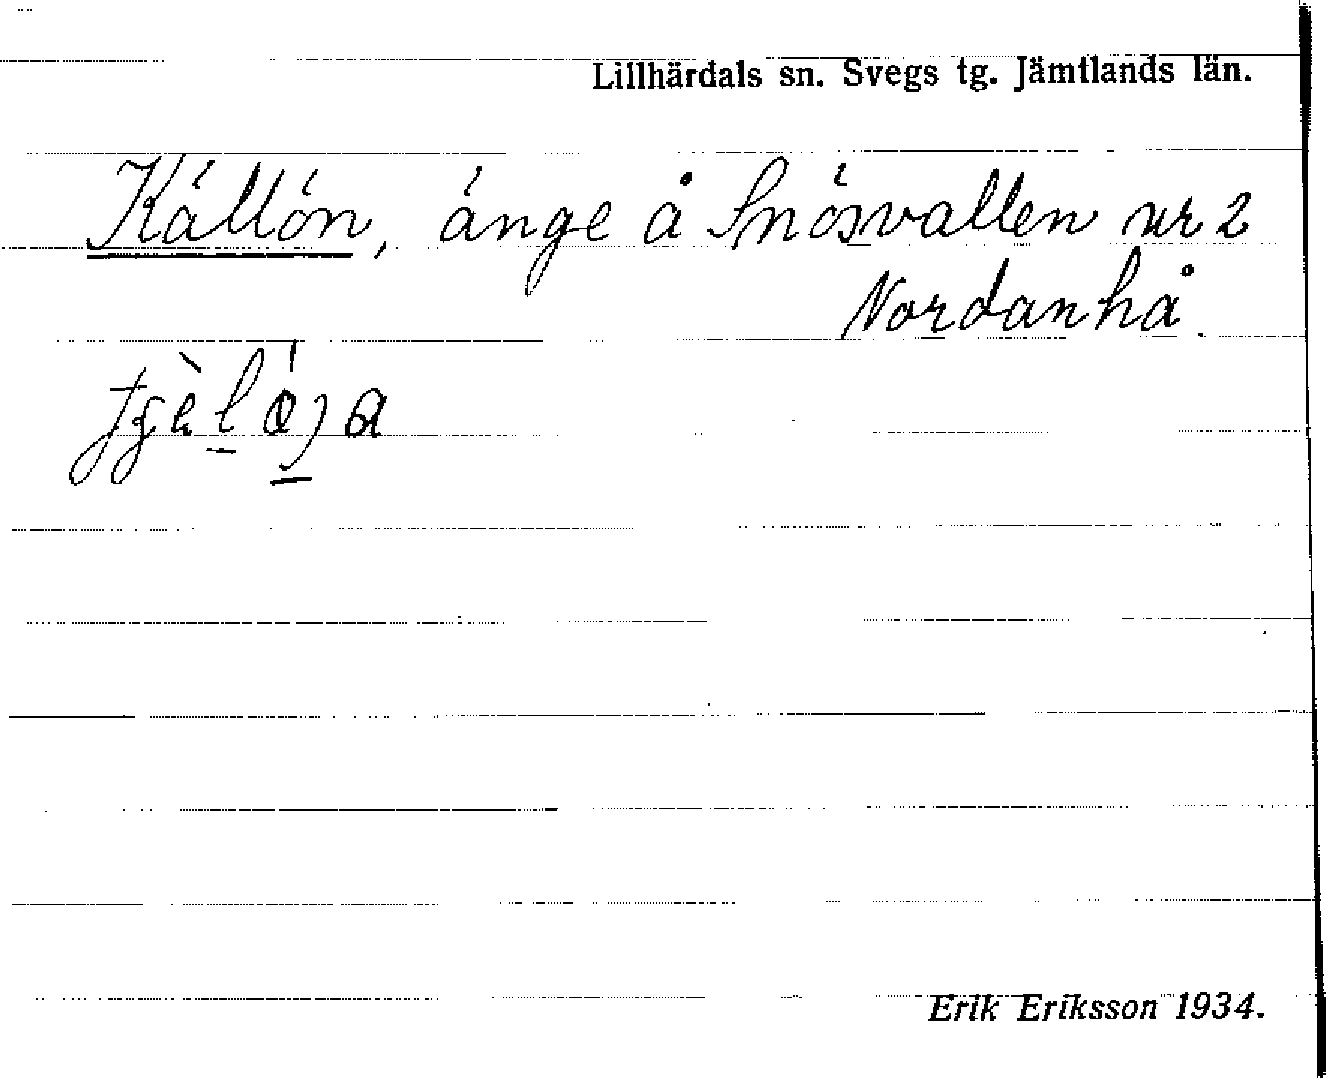 Lillhärdals sn. Svegs tg. Jämtlands län.
Källön, änge å Snösvallen nr 2
Nordanhå.
Erik Eriksson 1934.